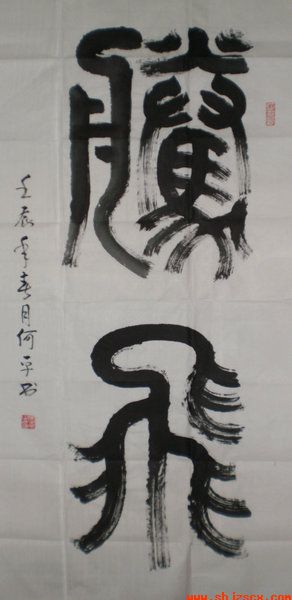 騰飛
壬辰年春月何平书
www.shjzscx.com